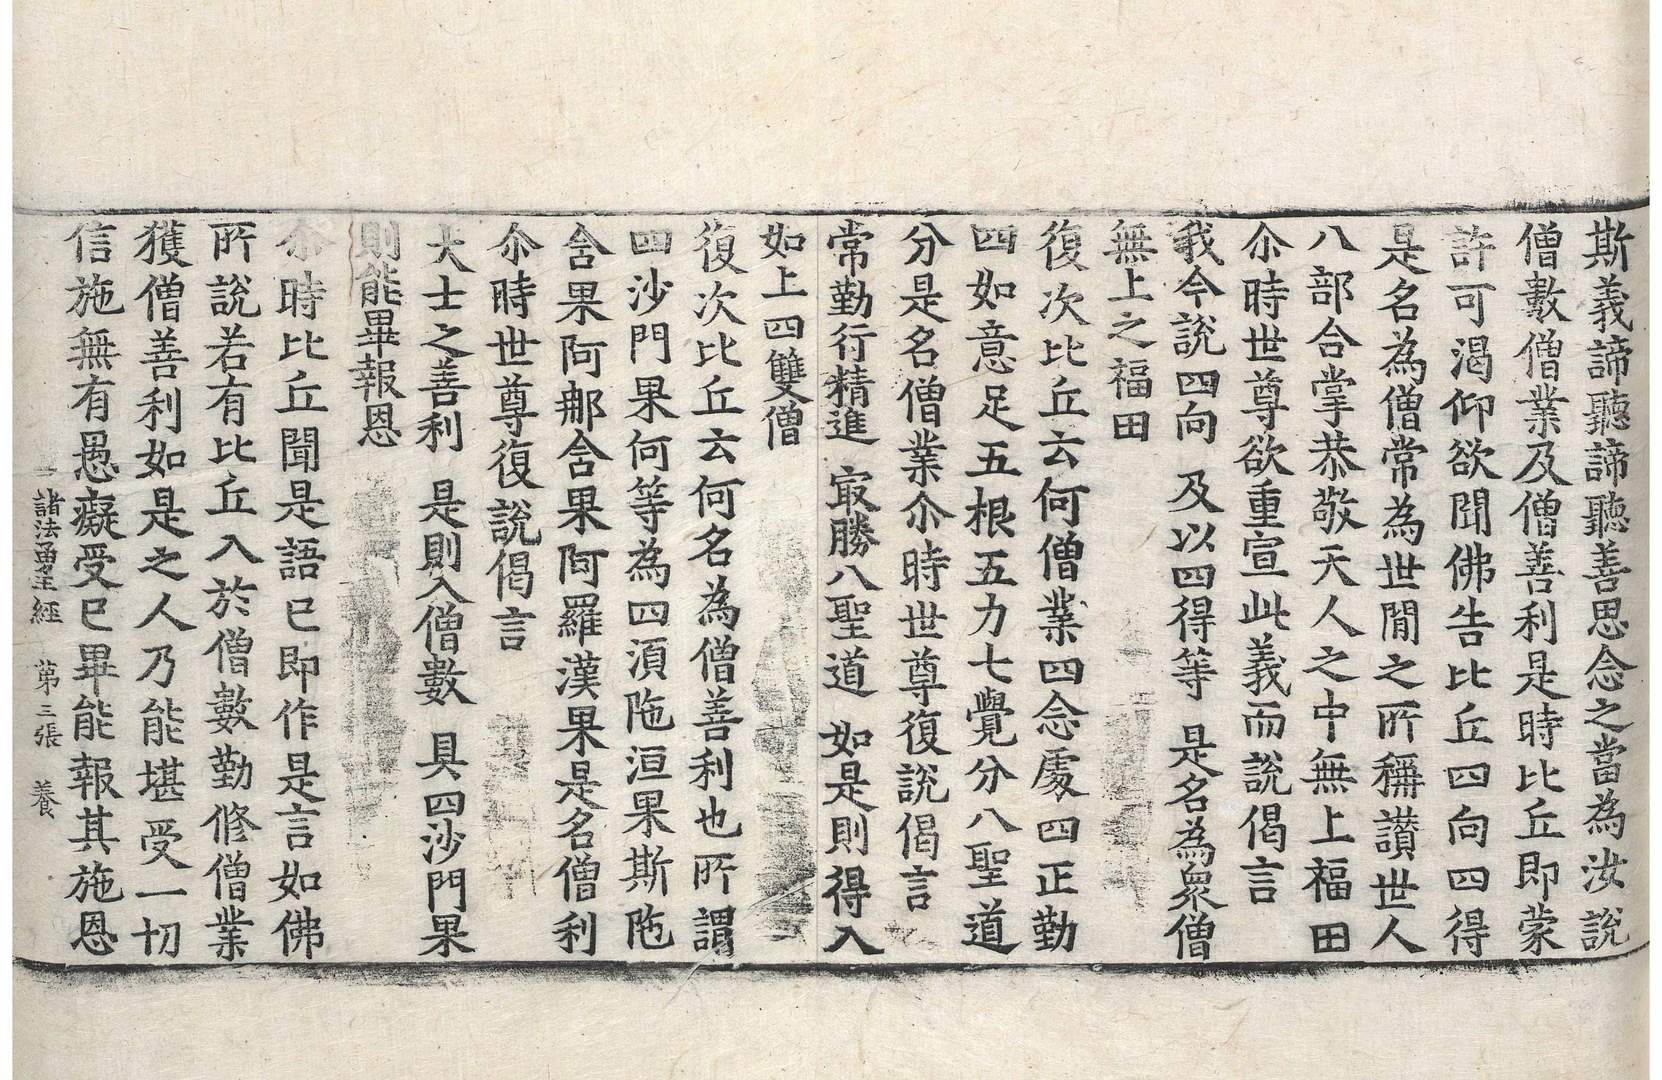 斯義諦聽諦聽善思念之當為汝說
僧數僧業及僧善利是時比丘即蒙
許可渴仰欲聞佛告比丘四向四得
是名為僧常為世間之所稱讃世人
八部合掌恭敬天人之中無上福田
尒時世尊欲重宣此義而說偈言
我今說四向　及以四得等　是名為衆僧
無上之福田
復次比丘云何僧業四念處四正勤
四如意足五根五力七覺分八聖道
分是名僧業尒時世尊復說偈言
常勤行精進　㝡勝八聖道　如是則得入
如上四雙僧
復次比丘云何名為僧善利也所謂
四沙門果何等為四湏陁洹果斯陁
含果阿那含果阿羅漢果是名僧利
尒時世尊復說偈言
大士之善利　是則入僧數　具四沙門果
則能畢報恩
尒時比丘聞是語已即作是言如佛
所說若有比丘入於僧數勤修僧業
獲僧善利如是之人乃能堪受一切
信施無有愚癡受已畢能報其施恩
諸法勇王經　第三張　養